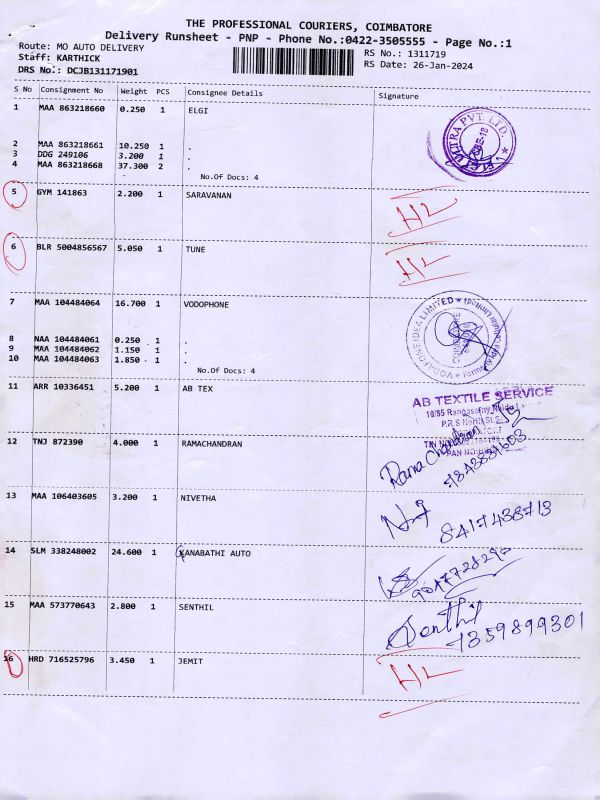 THE PROFESSIONAL COURIERS, COIMBATORE
Delivery Runsheet - PNP - Phone No.:0422-3505555 - Page No.:1
Route: MO AUTO DELIVERY RS No.: 1311719
Staff: KARTHICK RS Date: 26-Jan-2024
DRS No.: DCJB131171901
S No Consignment No Weight PCS Consignee Details Signature
1 MAA 863218660 0.250 1 ELGI
2 MAA 863218661 10.250 1 .
3 DDG 249106 3.200 1 .
4 MAA 863218668 37.300 2 .
No.Of Docs: 4
5 GYM 141863 2.200 1 SARAVANAN
6 BLR 5004856567 5.050 1 TUNE
7 MAA 104484064 16.700 1 VODOPHONE
VODAFONE IDEA LIMITED
8 NAA 104484061 0.250 1 .
9 MAA 104484062 1.150 1 .
10 MAA 104484063 1.850 1 .
No.Of Docs: 4
11 ARR 10336451 5.200 1 AB TEX
AB TEXTILE SERVICE
12 TNJ 872390 4.000 1 RAMACHANDRAN
Rama Chandran
13 MAA 106403605 3.200 1 NIVETHA
8417438713
14 SLM 338248002 24.600 1 KANABATHI AUTO
15 MAA 573770643 2.800 1 SENTHIL
Senthil
7359899301
16 HRD 716525796 3.450 1 JEMIT